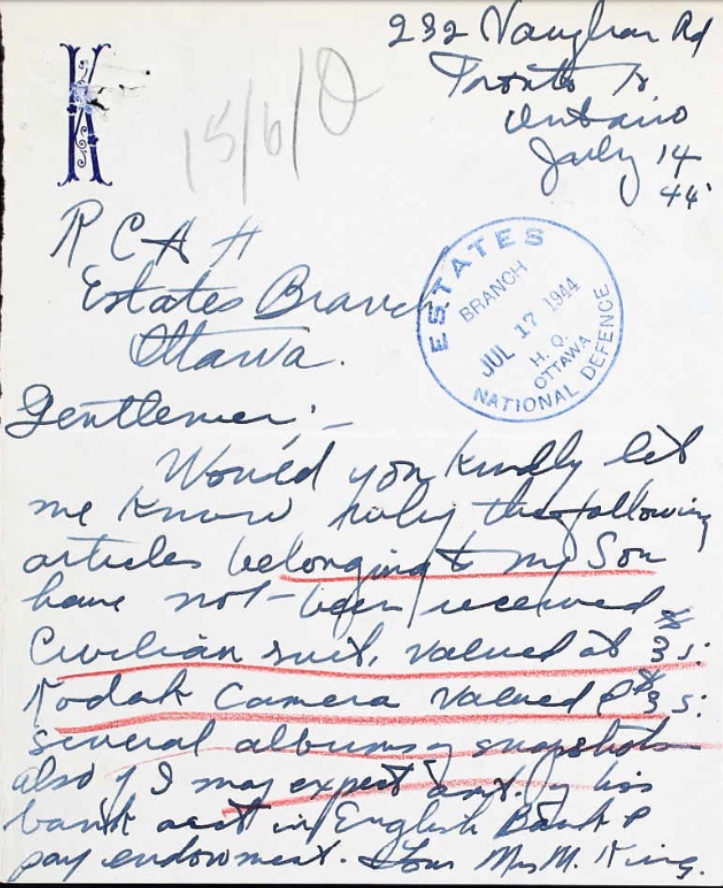 K
15/6/0
232 Vaughan Rd
Toronto 10
Ontario
July 14
44'
R C A H
Estates Branch
Ottawa.
ESTATES
BRANCH
JUL 17 1944
H. Q.
OTTAWA
NATIONAL DEFENCE
Gentlemen;-
Would you kindly let
me know why the following
articles belonging to my Son
have not been received
Civilian suit, valued at
Kodak Camera valued
several albums snapshots
also if I may expect amt. of his
bank acct in English Bank
pay endowment. Your Mrs M. King.